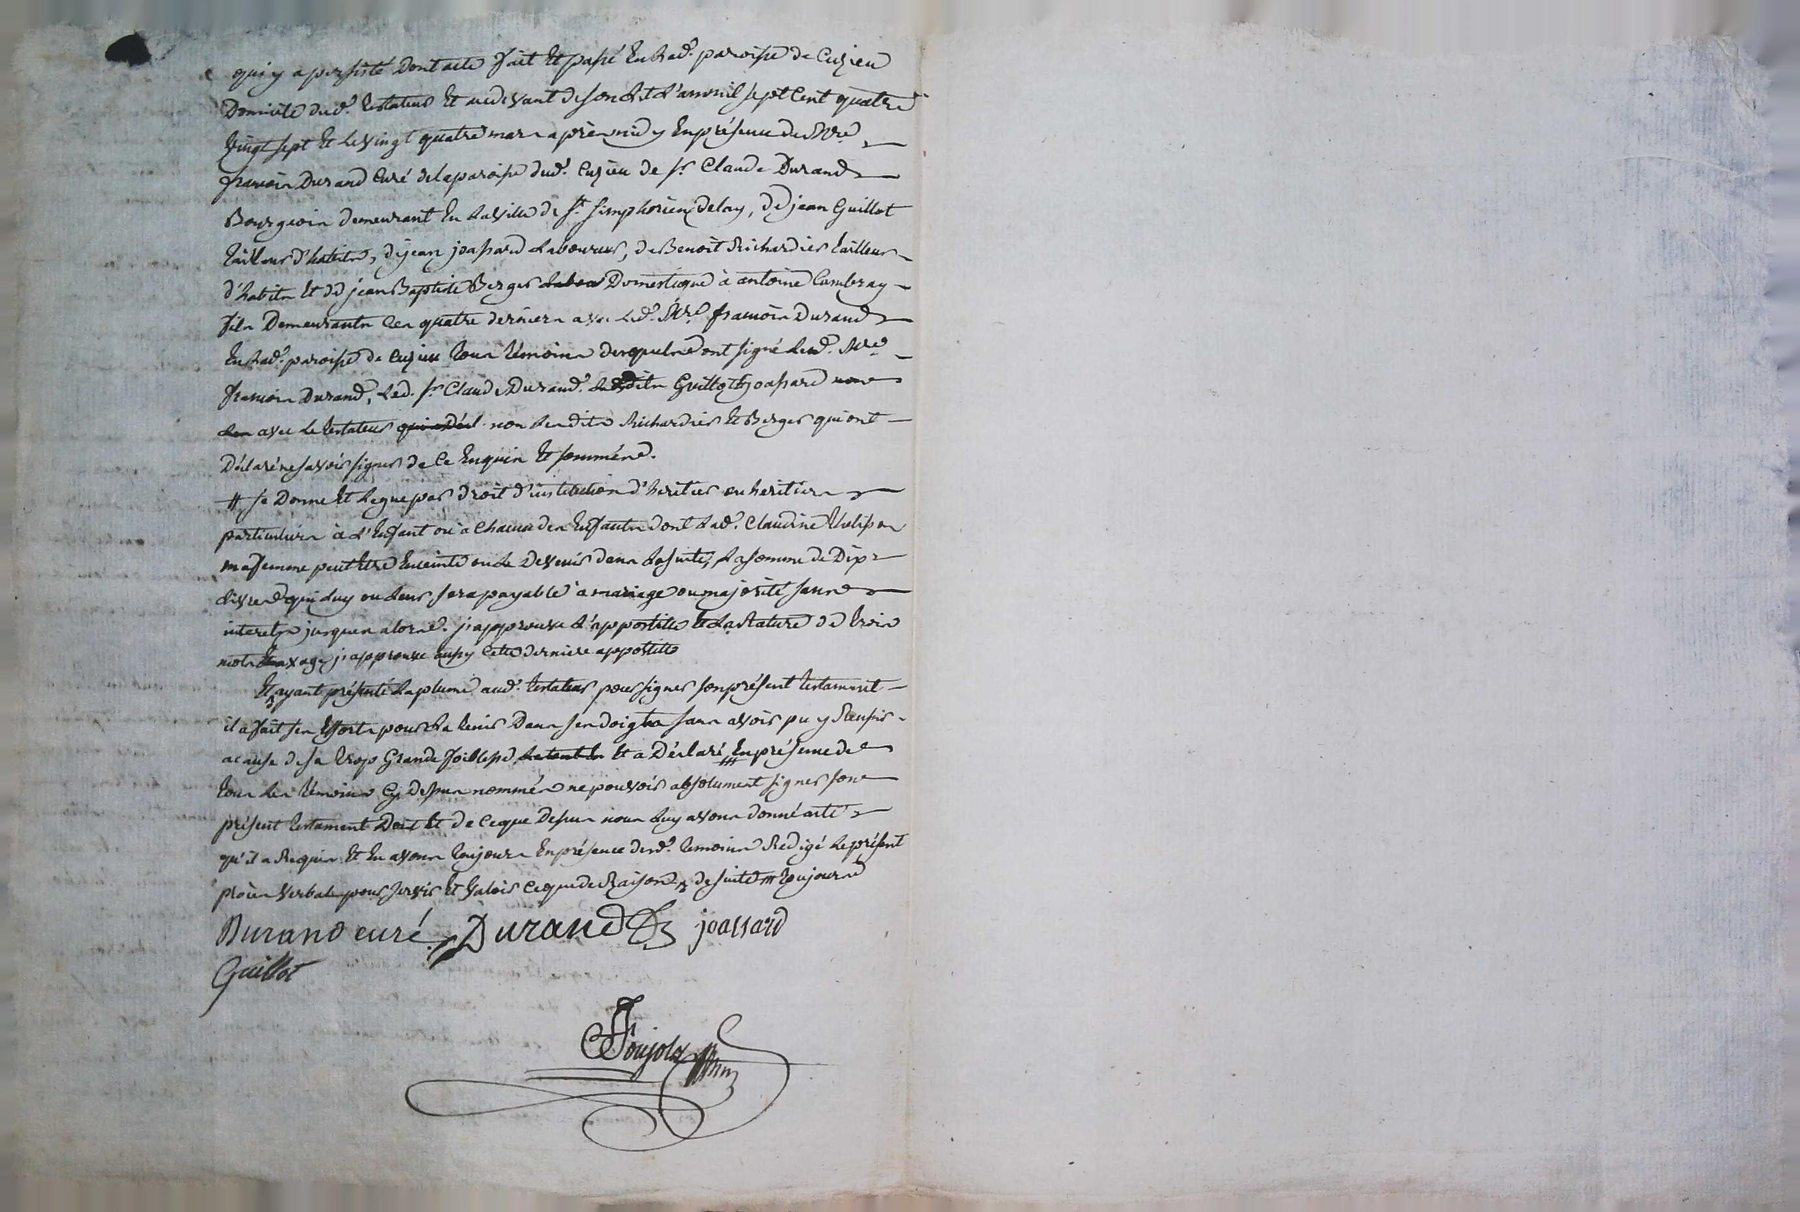 qui y a persisté Dont acte fait Et passé En lad.e paroisse de Cuzieu
Domicile dud.t testateur Et audevant de son Lit L'an mil sept Cent quatre
Vingt sept Et le Vingt quatre mars après midy En présence de Mre
françois Durand Curé de la paroisse dud.t Cuzieu de Sr Claude Durand
Bourgeois demeurant En la Ville de St Simphorien delay, de jean Guillot
tailleur d'habits, de jean joassard Laboureur, de Benoit Richardier tailleur
d'habits Et de jean Baptiste Berger Domestique à antoine Cambray
fils Demeurants Ces quatre derniers avec Led.t Mre françois Durand
En lad.e paroisse de Cuzieu tous témoins desquels ont signé Led.t Mre
françois Durand, Led. Sr Claude Durand. Lesdits Guillot Et joassard
avec Le testateur non Lesdits Richardier Et Berger qui ont
Déclaré ne savoir signer de Ce Enquis Et sommés.
# je Donne Et Legue par droit d'institution d'heritier ou heritiers
particuliers à L'Enfant ou à Chacun des Enfants dont Lad.e Claudine
ma femme peut Etre Enceinte ou Le Devenir dans La suite, La somme de Dix
Livres qui luy ou Leur sera payable à mariage ou majorité sans
interets jusquen alors. j'approuve L'appostille Et La Rature de trois
mots j'approuve aussy Cette derniere appostille
Et ayant présenté La plume aud.t testateur pour signer son présent testament
il a fait ses Efforts pour La tenir Dans ses doigts sans avoir pu y Reussir
a cause de sa trop Grande foiblesse Et a Déclaré En présence de
tous Les témoins Cy Dessus nommés ne pouvoir absolument signer son
présent testament Et de Ce que Dessus nous Luy avons donné acte
qu'il a Requis Et En avons toujours En présence desd.t temoins Redigé Le présent
procès Verbal pour servir Et Valoir Ce que de Raison de suite toujours
Durand curé Durand joassard
Guillot